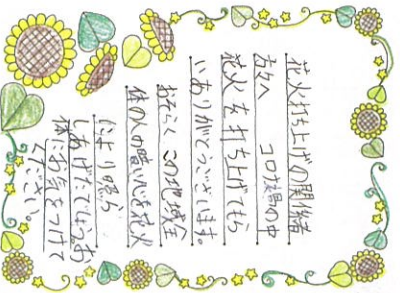 花火打ち上げの関係者
方々へ コロナ禍の中
花火を打ち上げてもら
いありがとうございます。
おそらくこの地域全
体の人の暗い心を花火
により明ら
しあげたでしょうお
体にお気をつけて
ください